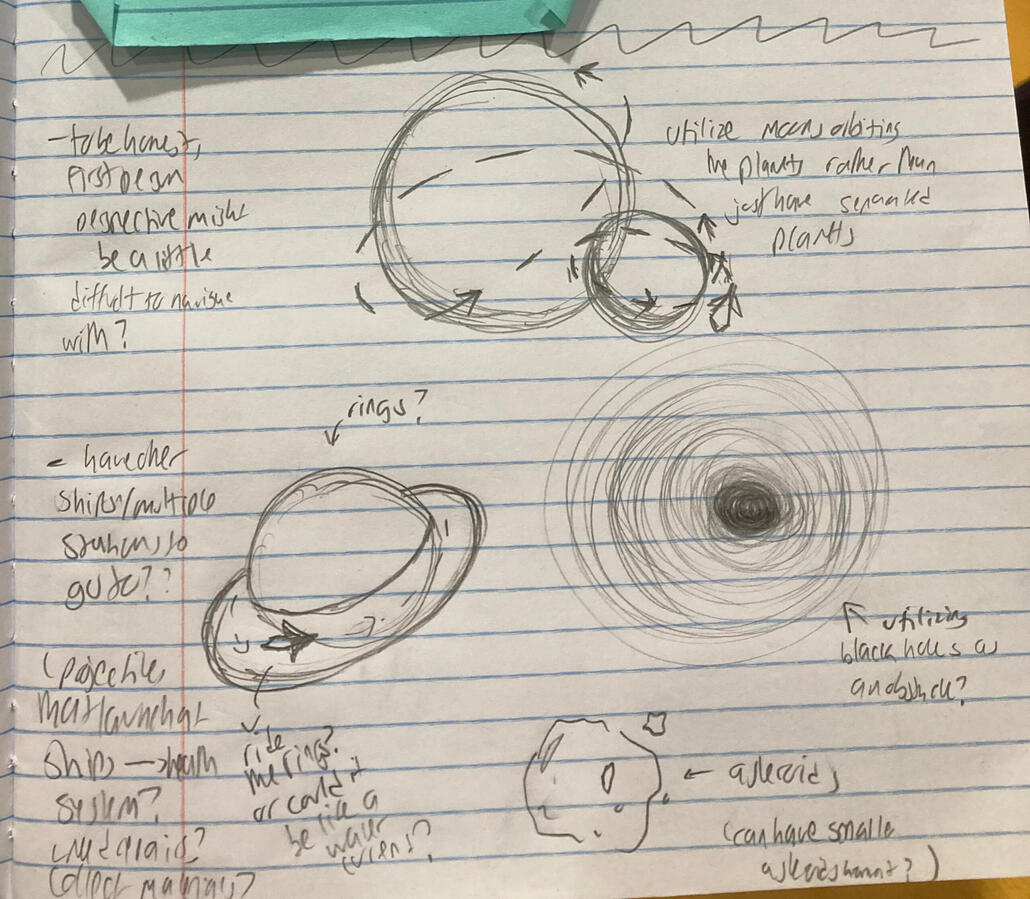 - to be honest,
First pers
perspective might
be a little
difficult to navigate
with?
utilize moons orbiting
the planets rather than
just have separated
planets
rings?
- have other
ships/multiple
stations to
go to??
(projectiles
that launch at
ships → health
system?
collect materials?
ride
the rings?
or could it
be like a
water
currents?
utilizing
black holes as
an obstacle?
← asteroids
(can have smaller
asteroids around?)